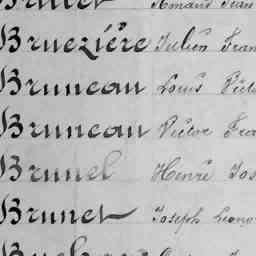 Bruezière Julien Fran
Bruneau Louis Victo
Bruneau Victor Fra
Brunel Henri Jos
Brunet Joseph Leono